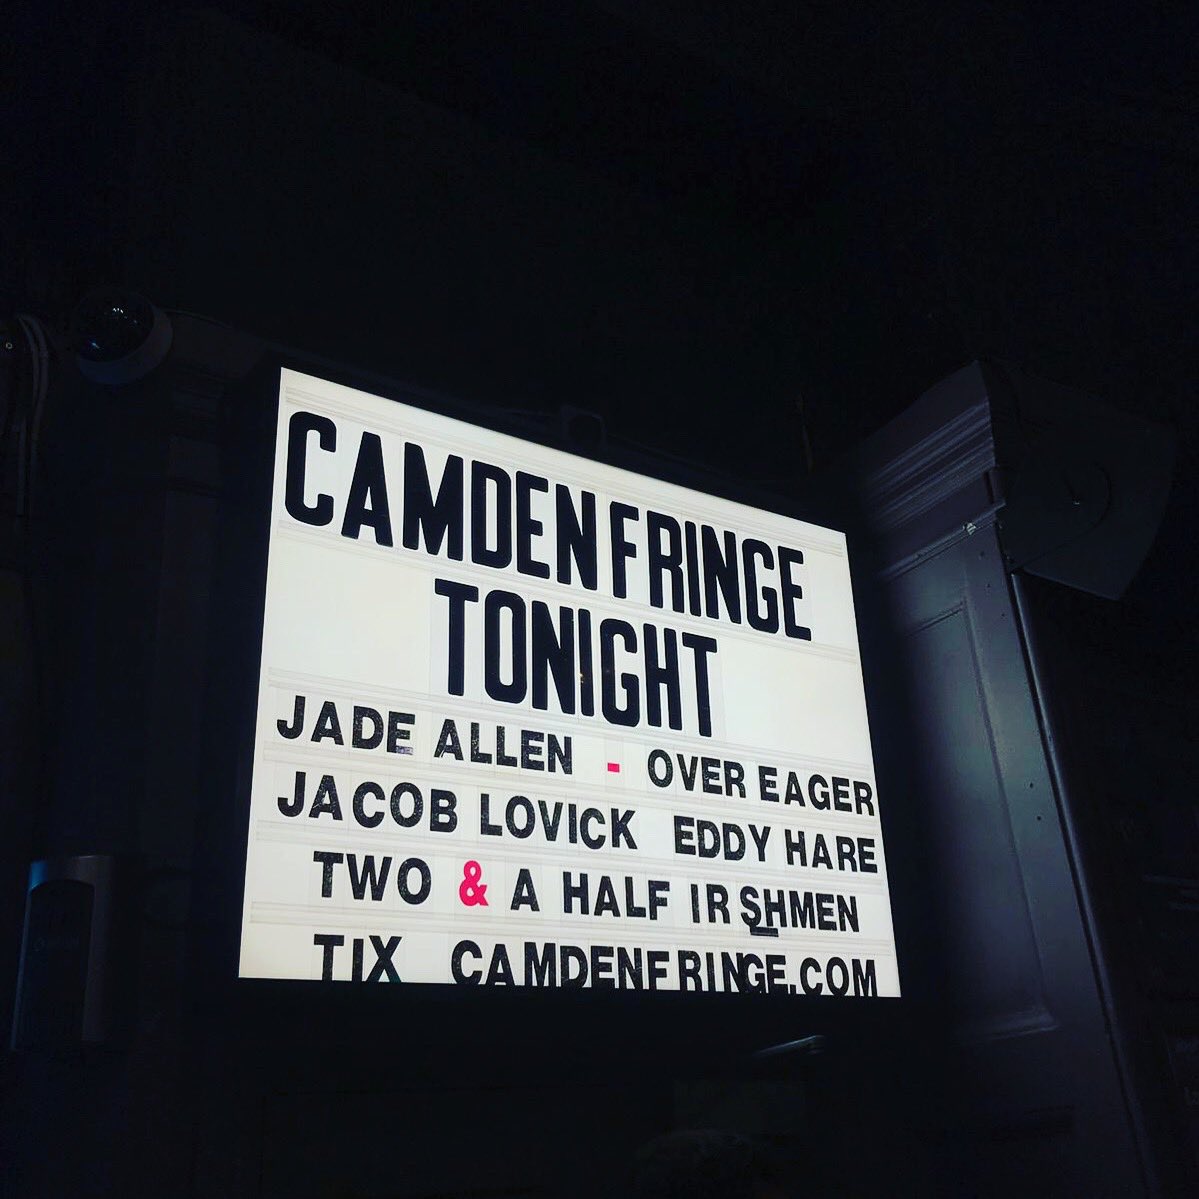 CAMDEN FRINGE
TONIGHT
JADE ALLEN - OVER EAGER
JACOB LOVICK EDDY HARE
TWO & A HALF IRSHMEN
TIX CAMDENFRINGE.COM